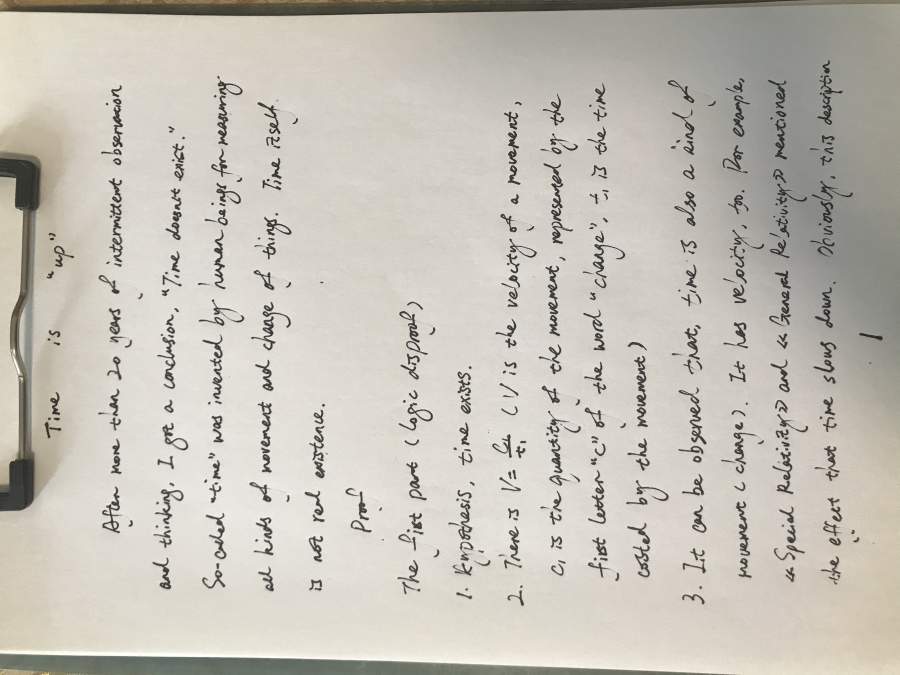 Time is "up"
After more than 20 years of intermittent observation
and thinking, I got a conclusion, "Time doesn't exist."
So-called "time" was invented by human beings for measuring
all kinds of movement and change of things. Time itself
is not real existence.
Proof
The first part (Logic disproof)
1. Hypothesis, time exists.
2. There is V = C₁/t₁ (V is the velocity of a movement,
C₁ is the quantity of the movement, represented by the
first letter "c" of the word "change", t₁ is the time
costed by the movement)
3. It can be observed that, time is also a kind of
movement (change). It has velocity, too. For example,
《Special Relativity》 and 《General Relativity》 mentioned
the effect that time slows down. Obviously, this description
1